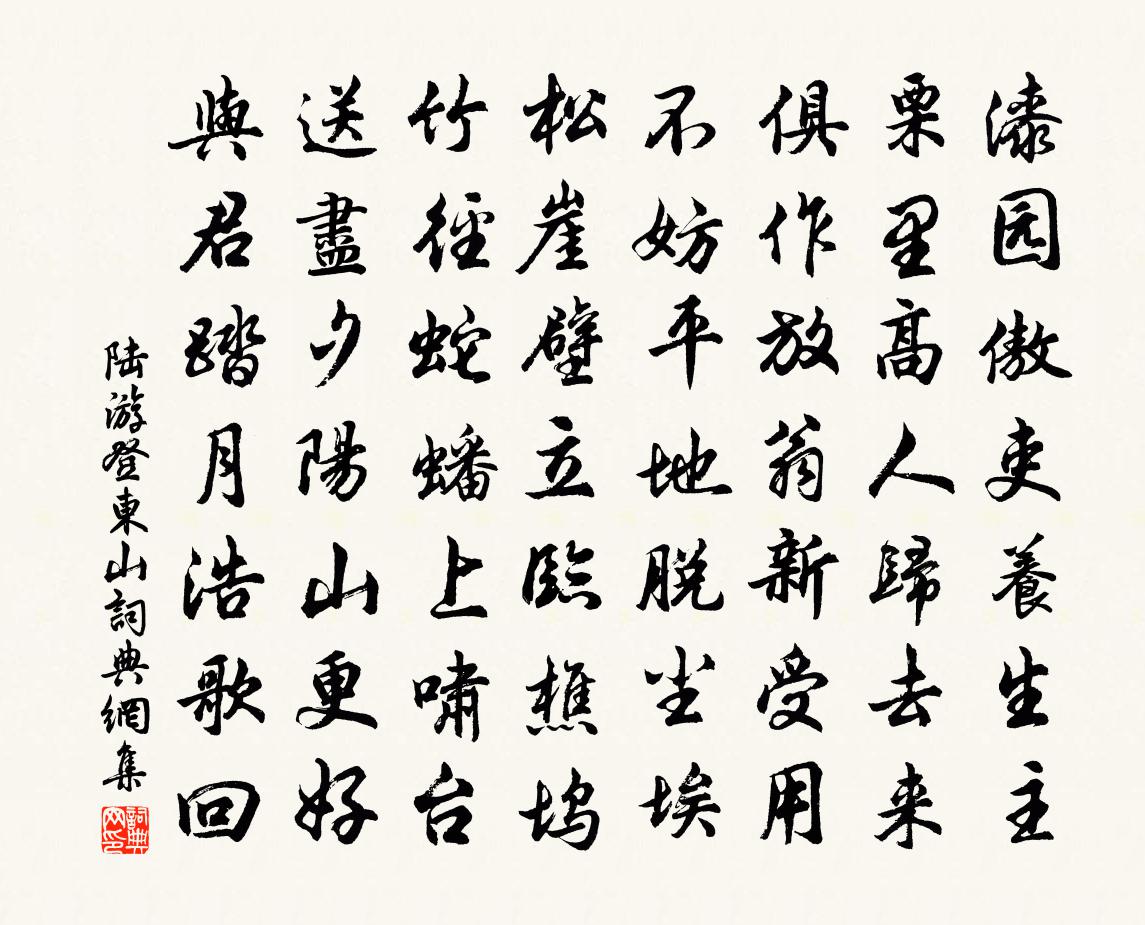 漆园傲吏養生主
栗里高人歸去来
俱作放翁新受用
不妨平地脱尘埃
松崖壁立臨樵坞
竹徑蛇蟠上嘯台
送盡夕陽山更好
與君踏月浩歌回
陆游登東山詞典網集
詞典网印